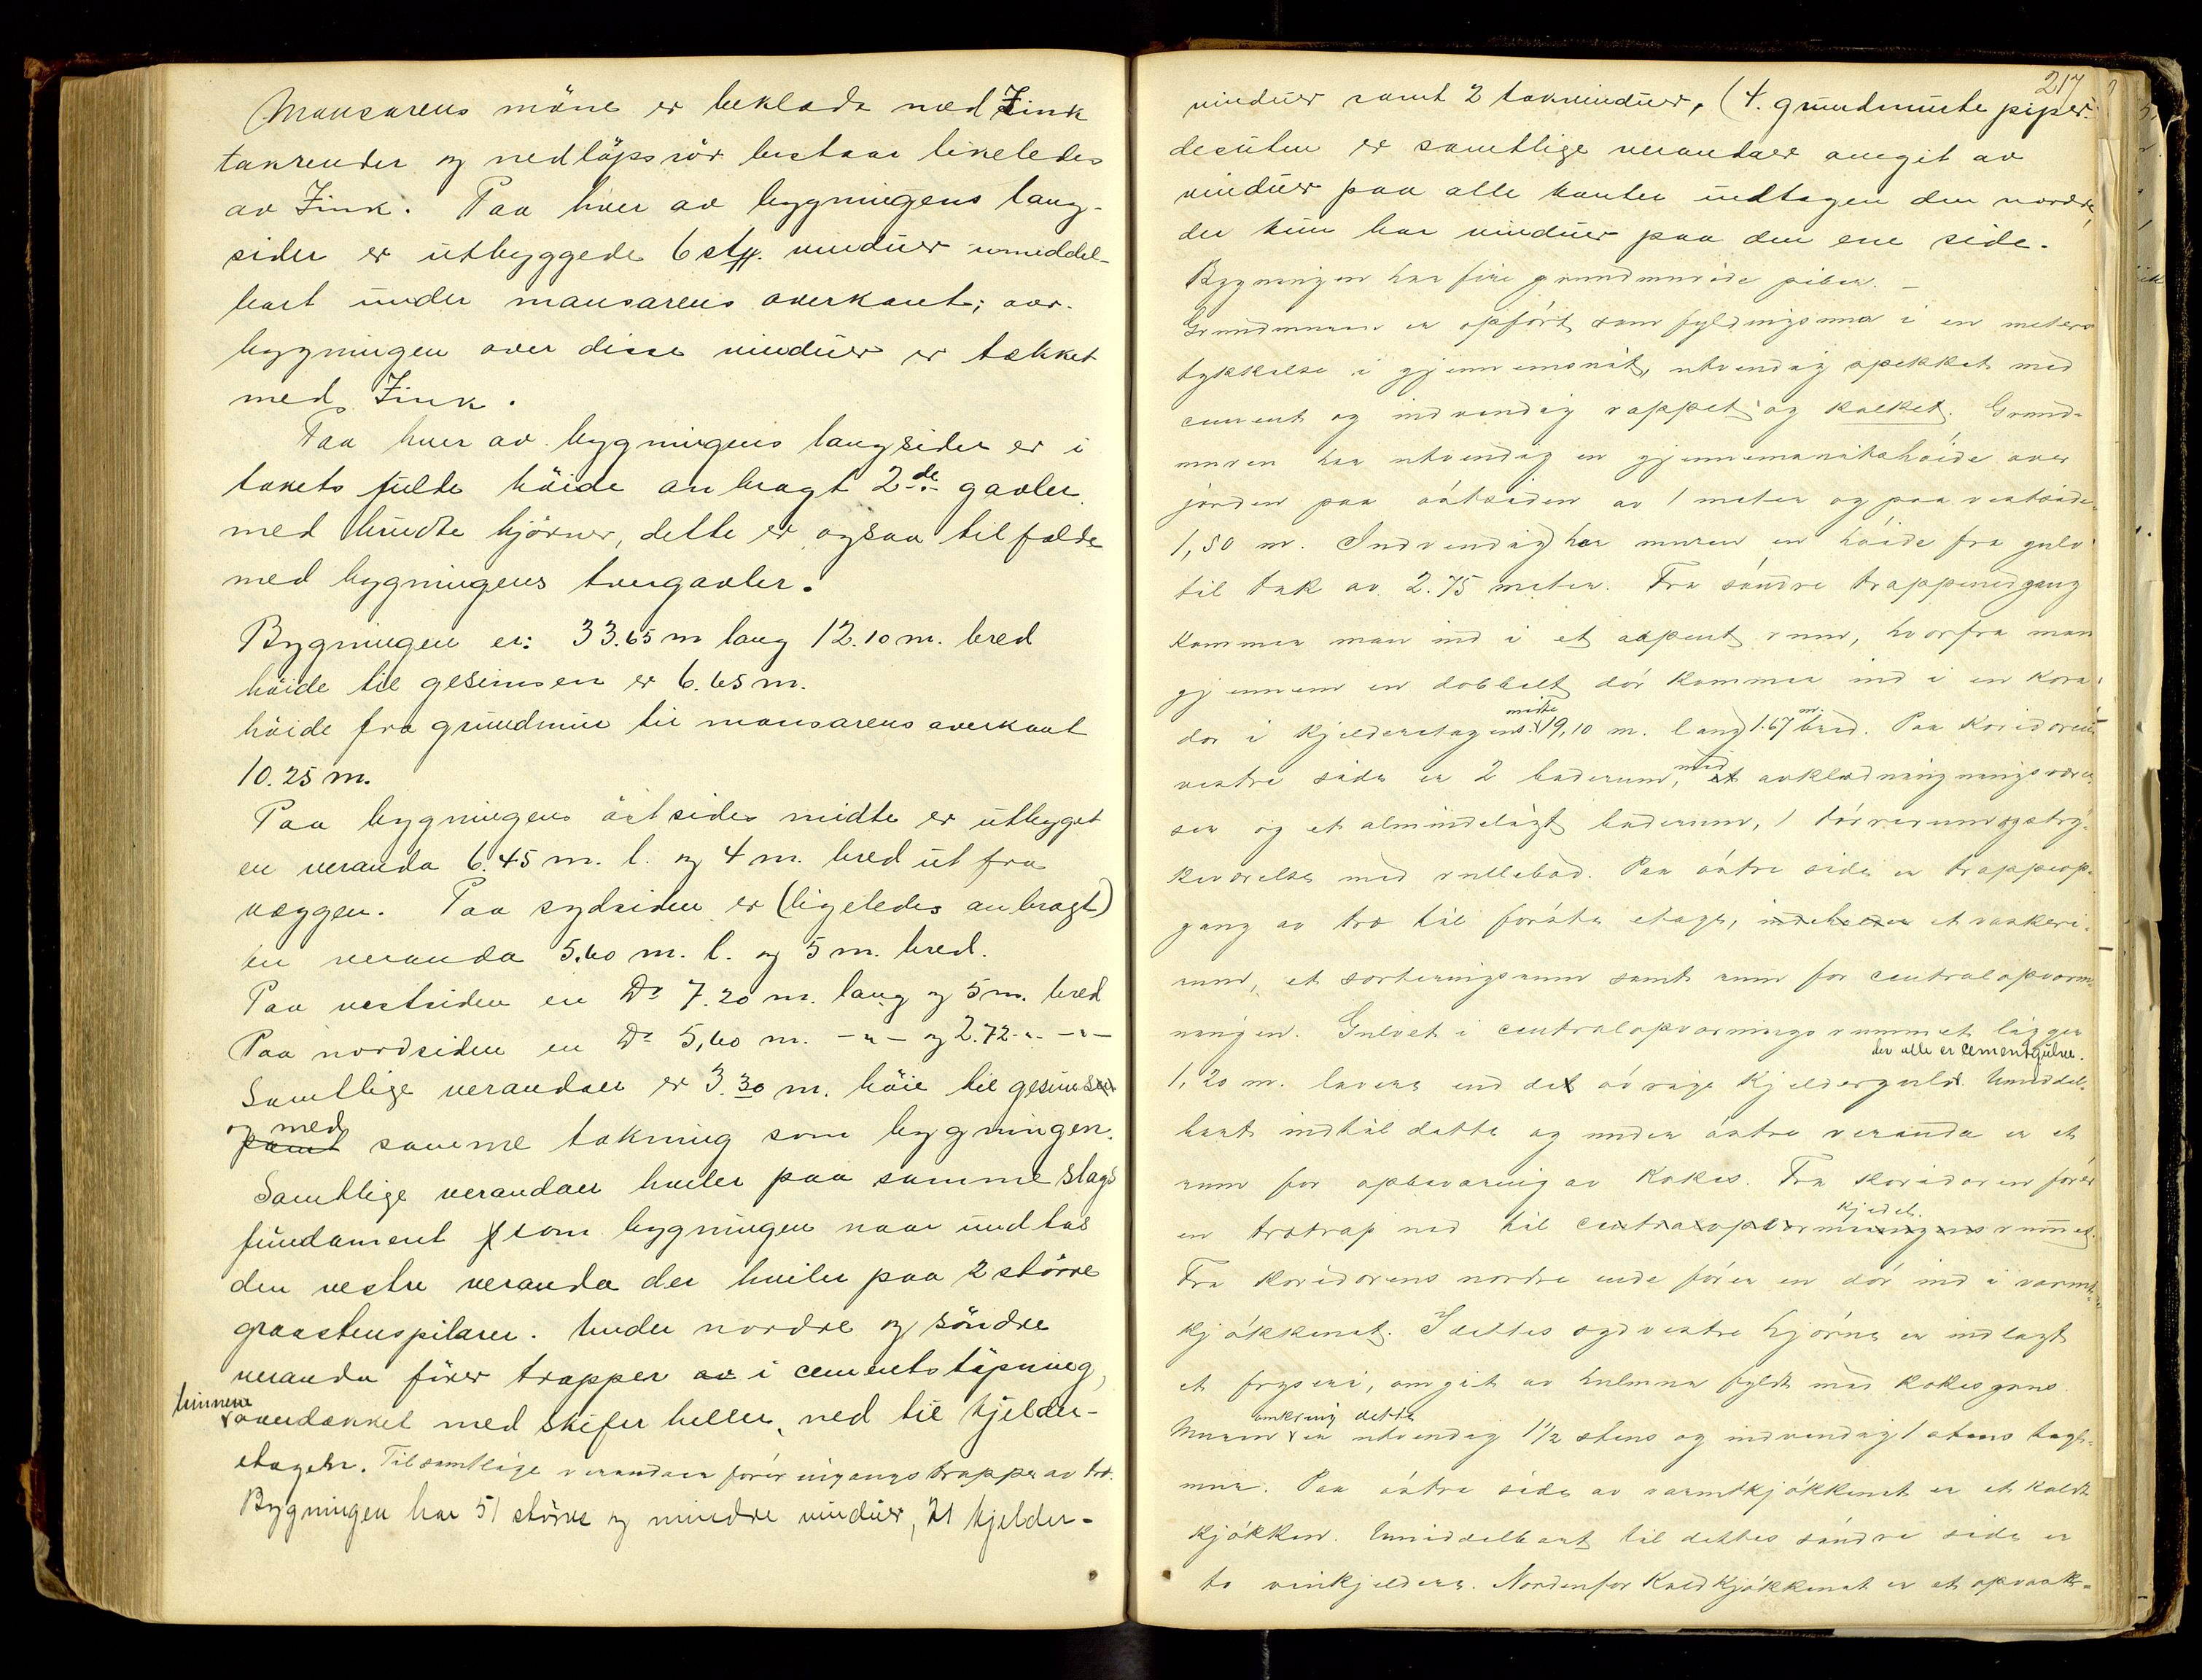 Mansarens möne er beklædt med Zink
takrender og nedløpsrør bestaar likeledes
av Zink. Paa hver av bygningens lang-
sider er utbyggede 6 stk. vinduer umiddel-
bart under mansarens overkant; over-
bygningen over disse vinduer er tækket
med Zink.
Paa hver av bygningens langsider er i
takets fulde höide anbragt 2de gavler
med brudte hjörner, dette er ogsaa tilfælde
med bygningens tvergavler.
Bygningen er: 33.65 m lang 12.10 m. bred
höide til gesimsen er 6.65 m.
höide fra grundmur til mansarens overkant
10.25 m.
Paa bygningens östsides midte er utbygget
en veranda 6.45 m. l. og 4 m. bred ut fra
væggen. Paa sydsiden er (ligeledes anbragt)
en veranda 5.60 m. l. og 5 m. bred.
Paa vestsiden en Do 7.20 m. lang og 5 m. bred
Paa nordsiden en Do 5,60 m. -"- og 2.72 -"- -"-
Samtlige verandaer er 3.30 m. höie til gesimsen
og med
samt samme tækning som bygningen.
Samtlige verandaer hviler paa samme slags
fundament som bygningen naar undtas
den vestre veranda der hviler paa 2 större
graastenspilarer. Under nordre og söndre
veranda förer trapper av i cementstöpning,
overdækket med skifer heller, ned til kjelder-
etagen. Til samtlige verandaer förer ingangstrapper av træ.
Bygningen har 51 större og mindre vinduer, 21 kjelder-
217
vinduer samt 2 takvinduer, (4. grundmurte piper.
desuten er samtlige verandaer omgit av
vinduer paa alle kanter undtagen den nordre,
der kun har vinduer paa den ene side.
Bygningen har fire grundmurede piber. –
Grundmuren er opfört som fyldningsmur i en meters
tykkelse i gjennemsnit, utvendig spekket med
cement og indvendig rappet og kalket. Grund-
muren har utvendig en gjennemsnitshöide over
jorden paa östsiden av 1 meter og paa vestside
1,50 m. Indvendig har muren en höide fra gulv
til tak av 2.75 meter. Fra söndre trappenedgang
kommer man ind i et aapent rum, hvorfra man
gjennem en dobbelt dör kommer ind i en kori-
midte m.
dor i kjelderetagens 19,10 m. lang 1.67 bred. Paa koridorens
med
vestre side er 2 baderum, et avklædningsværel-
ser og et almindeligt baderum, 1 törrerum og stry-
keværelse med rullebod. Paa östre side er trappeop-
gang av træ til förste etage, indeholder et vaskeri-
rum, et sorteringsrum samt rum for centralopvarm-
ningen. Gulvet i centralopvarmingsrummet ligger
der alle er cementgulve.
1,20 m. lavere end det övrige kjeldergulv. Umiddel-
bart indtil dette og under östre veranda er et
rum for opbevaring av kokes. Fra koridoren förer
kjedel.
en trætrap ned til centralopvarmningens rummet.
Fra koridorens nordre ende förer en dör ind i varmt-
kjökkenet. I dettes sydvestre hjörne er indlagt
et fryseri, omgit av hulmur fyldt med kokesgrus.
omkring dette
Muren er utvendig 1½ stens og indvendig 1 stens tegl-
mur. Paa östre side av varmtkjökkenet er et koldt
kjökken. Umiddelbart til dettes söndre side er
to vinkjeldere. Nordenfor Koldkjökkenet er et opvask-